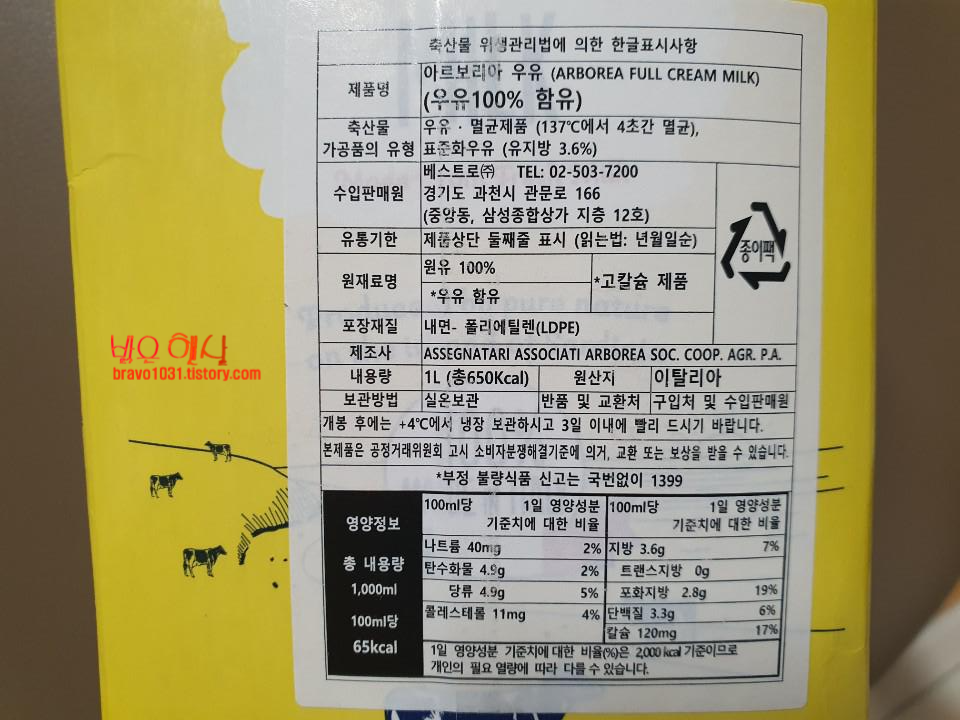 축산물 위생관리법에 의한 한글표시사항
제품명
아르보리아 우유 (ARBOREA FULL CREAM MILK)
(우유100% 함유)
축산물
가공품의 유형
우유 · 멸균제품 (137℃에서 4초간 멸균),
표준화우유 (유지방 3.6%)
수입판매원
베스트로㈜ TEL: 02-503-7200
경기도 과천시 관문로 166
(중앙동, 삼성종합상가 지층 12호)
종이팩
유통기한
제품상단 둘째줄 표시 (읽는법: 년월일순)
원재료명
원유 100%
*우유 함유
*고칼슘 제품
포장재질
내면- 폴리에틸렌(LDPE)
제조사
ASSEGNATARI ASSOCIATI ARBOREA SOC. COOP. AGR. P.A.
내용량
1L (총650Kcal)
원산지
이탈리아
보관방법
실온보관
반품 및 교환처
구입처 및 수입판매원
개봉 후에는 +4℃에서 냉장 보관하시고 3일 이내에 빨리 드시기 바랍니다.
본제품은 공정거래위원회 고시 소비자분쟁해결기준에 의거, 교환 또는 보상을 받을 수 있습니다.
*부정 불량식품 신고는 국번없이 1399
영양정보
총 내용량
1,000ml
100ml당
65kcal
100ml당 1일 영양성분
기준치에 대한 비율
나트륨 40mg 2%
탄수화물 4.9g 2%
당류 4.9g 5%
콜레스테롤 11mg 4%
100ml당 1일 영양성분
기준치에 대한 비율
지방 3.6g 7%
트랜스지방 0g
포화지방 2.8g 19%
단백질 3.3g 6%
칼슘 120mg 17%
1일 영양성분 기준치에 대한 비율(%)은 2,000 kcal 기준이므로
개인의 필요 열량에 따라 다를 수 있습니다.
밝은 햇살
bravo1031.tistory.com